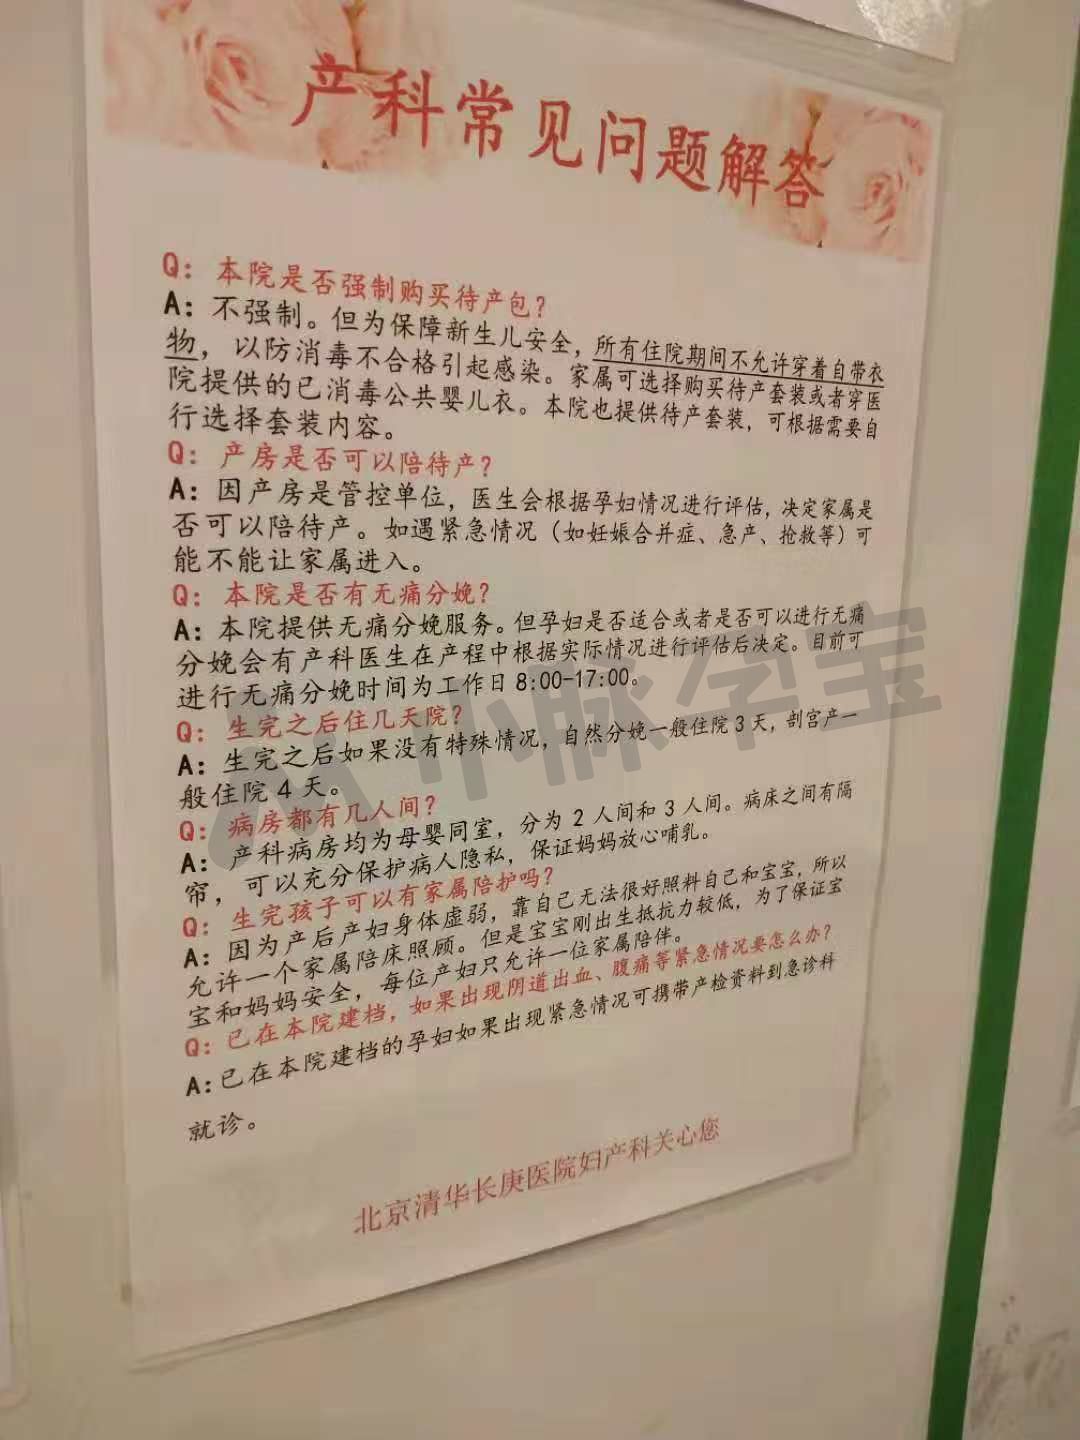 产科常见问题解答
Q: 本院是否强制购买待产包?
A: 不强制。但为保障新生儿安全,所有住院期间不允许穿着自带衣
物,以防消毒不合格引起感染。家属可选择购买待产套装或者穿医
院提供的已消毒公共婴儿衣。本院也提供待产套装,可根据需要自
行选择套装内容。
Q: 产房是否可以陪待产?
A: 因产房是管控单位,医生会根据孕妇情况进行评估,决定家属是
否可以陪待产。如遇紧急情况(如妊娠合并症、急产、抢救等)可
能不能让家属进入。
Q: 本院是否有无痛分娩?
A: 本院提供无痛分娩服务。但孕妇是否适合或者是否可以进行无痛
分娩会有产科医生在产程中根据实际情况进行评估后决定。目前可
进行无痛分娩时间为工作日8:00-17:00。
Q: 生完之后住几天院?
A: 生完之后如果没有特殊情况,自然分娩一般住院3天,剖宫产一
般住院4天。
Q: 病房都有几人间?
A: 产科病房均为母婴同室,分为2人间和3人间。病床之间有隔
帘,可以充分保护病人隐私,保证妈妈放心哺乳。
Q: 生完孩子可以有家属陪护吗?
A: 因为产后产妇身体虚弱,靠自己无法很好照料自己和宝宝,所以
允许一个家属陪床照顾。但是宝宝刚出生抵抗力较低,为了保证宝
宝和妈妈安全,每位产妇只允许一位家属陪伴。
Q: 已在本院建档,如果出现阴道出血、腹痛等紧急情况要怎么办?
A: 已在本院建档的孕妇如果出现紧急情况可携带产检资料到急诊科
就诊。
北京清华长庚医院妇产科关心您
小脉孕宝